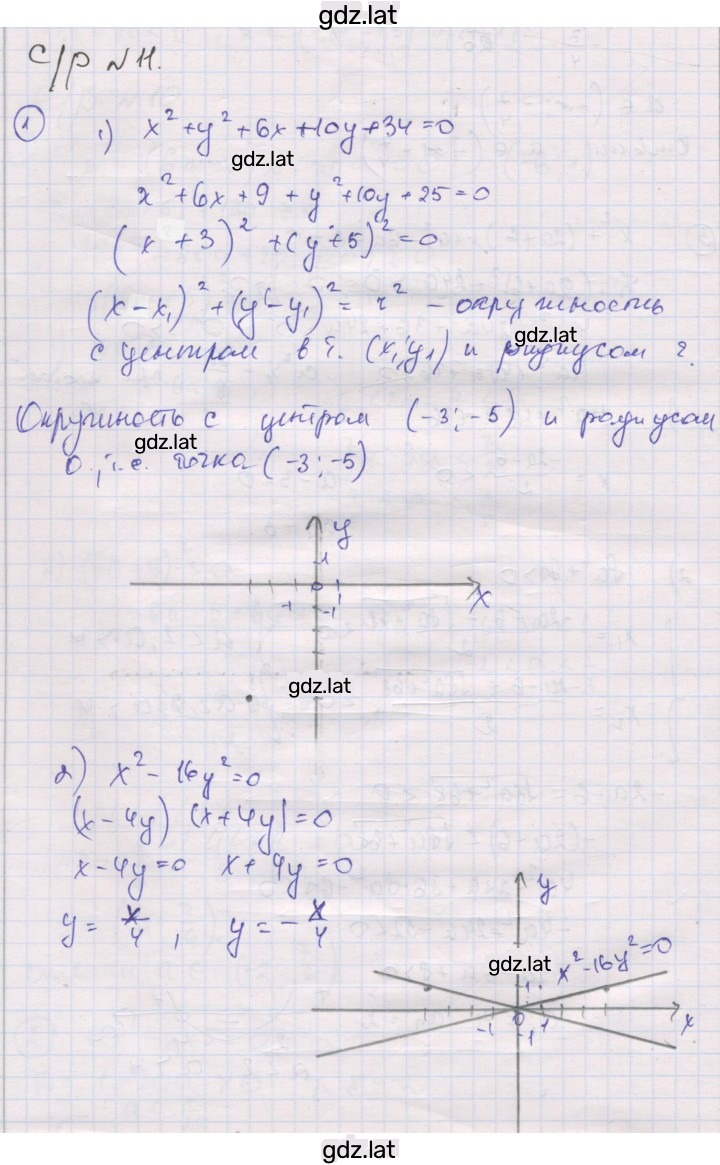 gdz.lat
С/р №11.
① 1) x² + y² + 6x + 10y + 34 = 0
gdz.lat
x² + 6x + 9 + y² + 10y + 25 = 0
(x + 3)² + (y + 5)² = 0
(x - x₁)² + (y - y₁)² = r² - окружность
gdz.lat
с центром в т. (x₁; y₁) и радиусом r.
Окружность с центром (-3; -5) и радиусом
gdz.lat
0, т.е. точка (-3; -5)
y
1
0
-1 1 x
-1
gdz.lat
2) x² - 16y² = 0
(x - 4y) (x + 4y) = 0
x - 4y = 0 x + 4y = 0
y = x/4, y = - x/4
y
gdz.lat
x² - 16y² = 0
1
0
-1 1 x
-1
gdz.lat